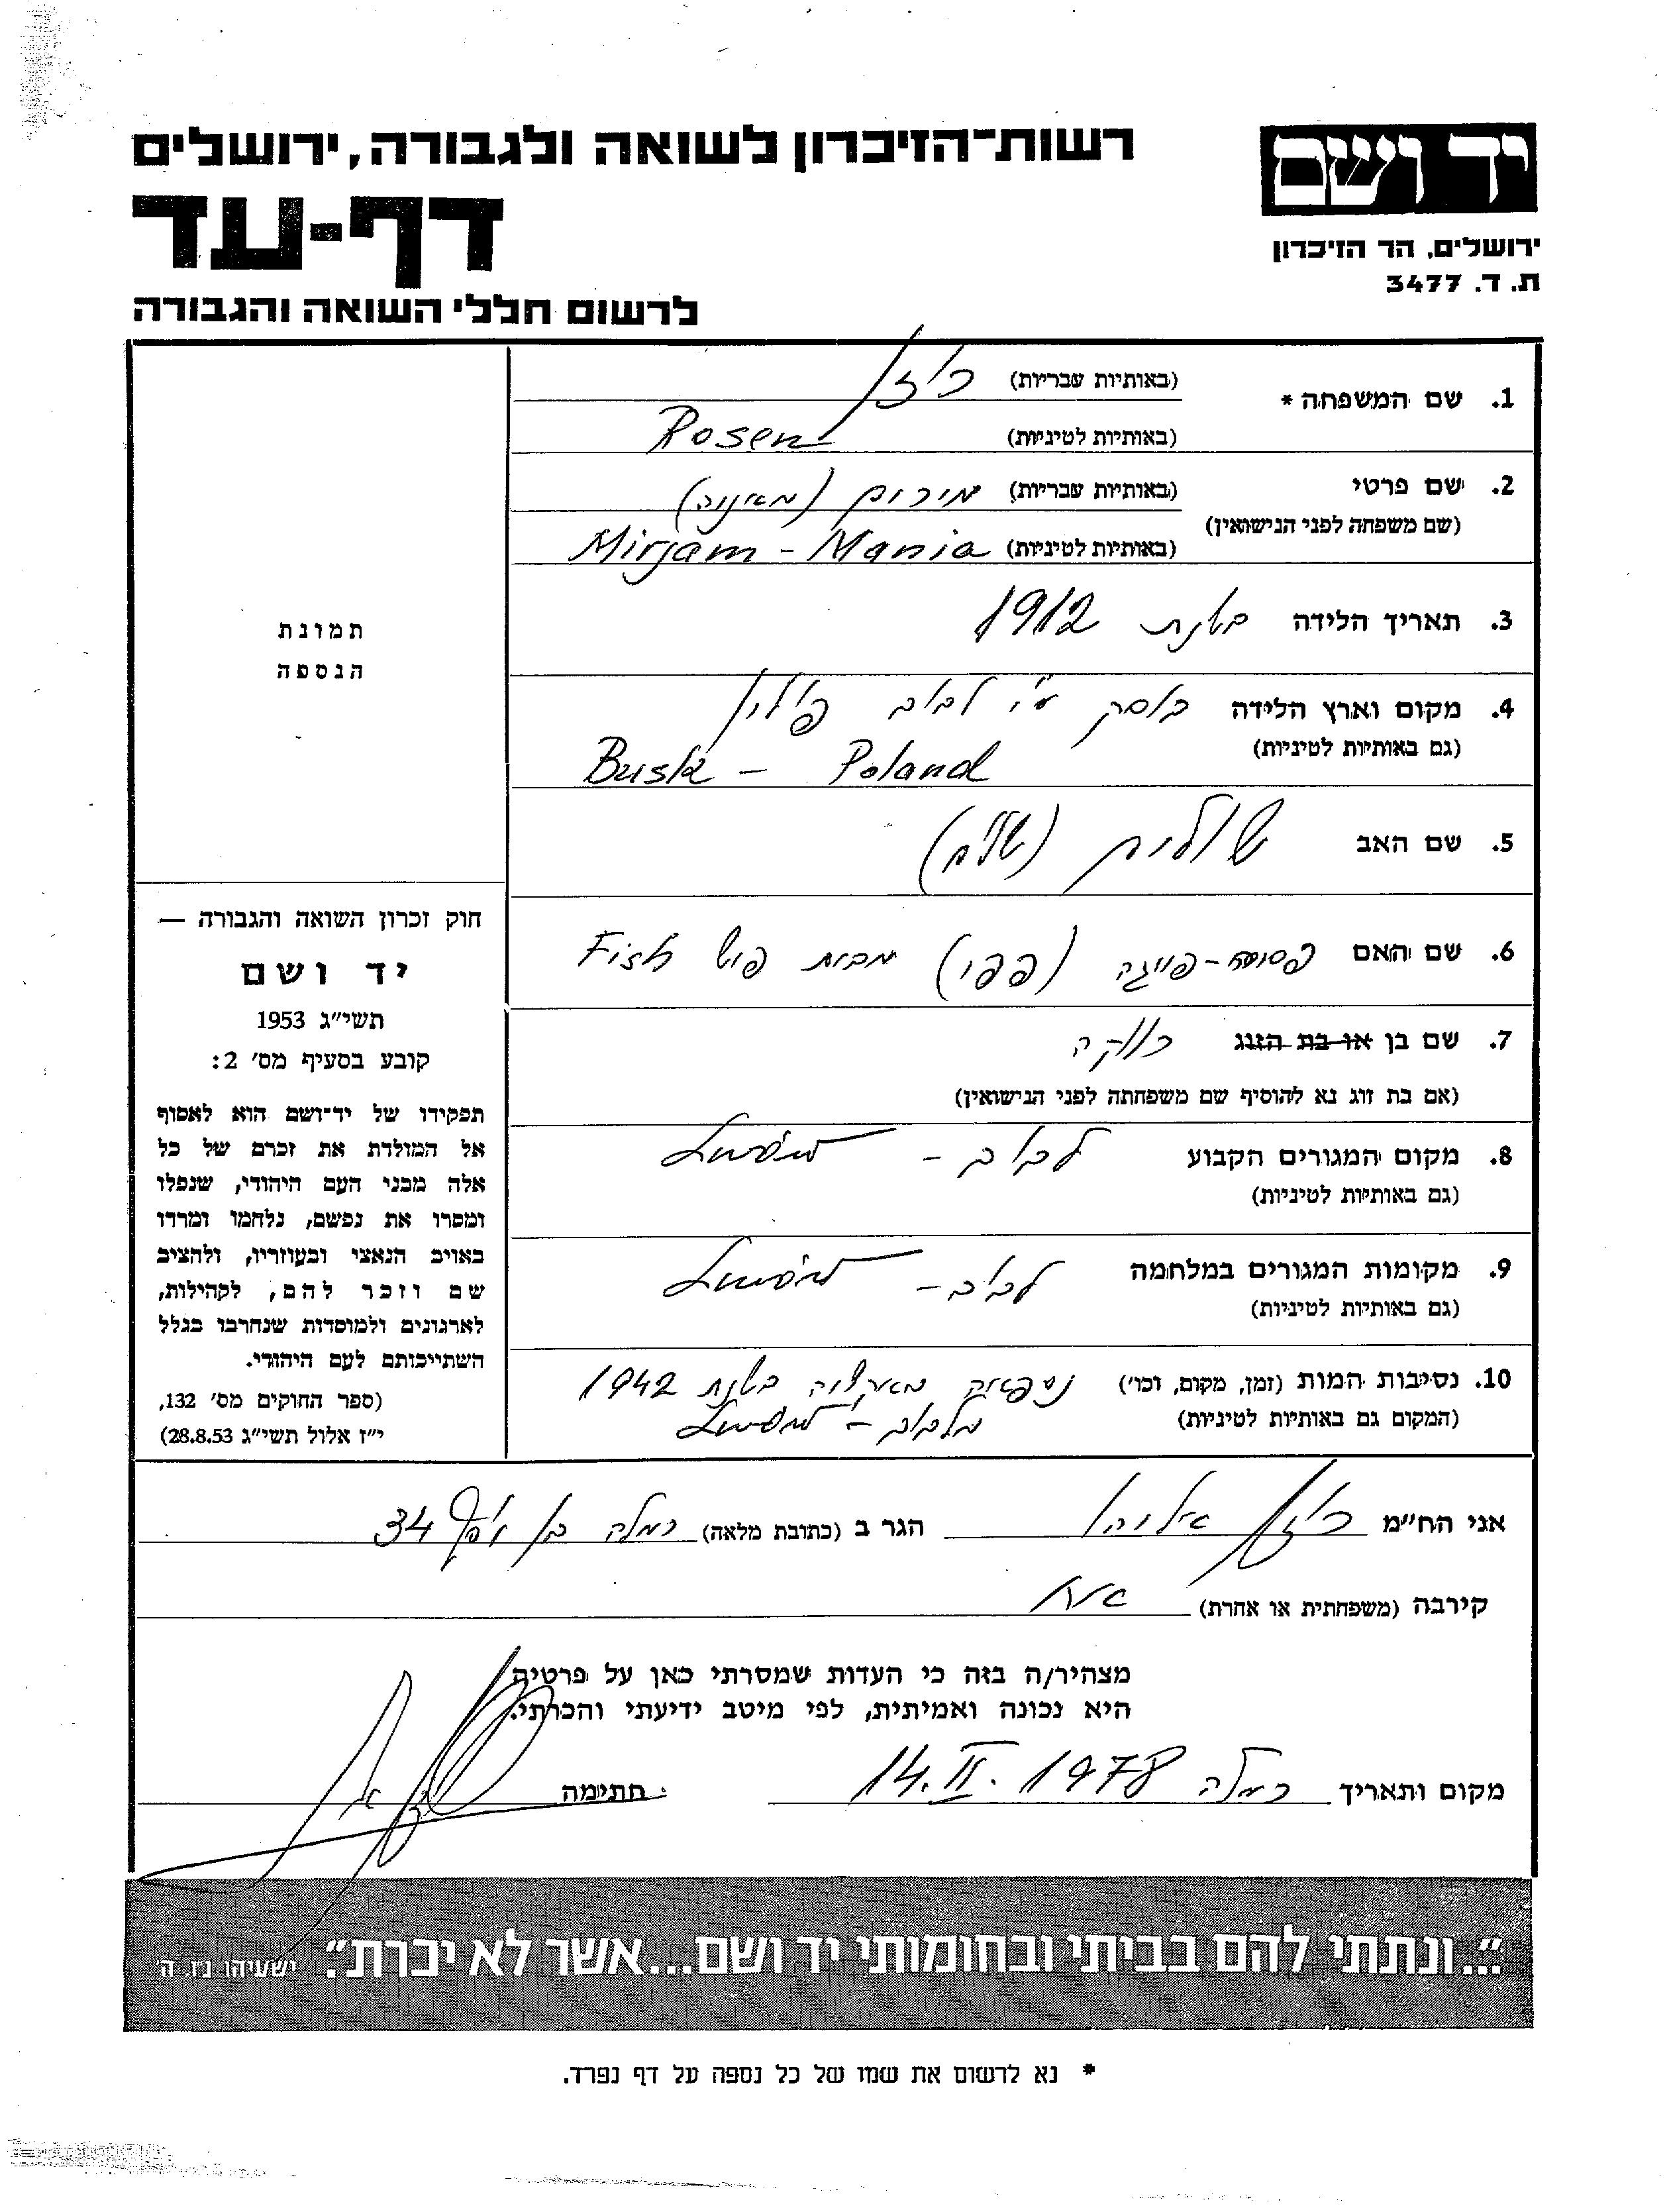 יד ושם
ירושלים, הר הזיכרון
ת. ד. 3477
רשות־הזיכרון לשואה ולגבורה, ירושלים
דף-עד
לרשום חללי השואה והגבורה
1. שם המשפחה * (באותיות עבריות) רוזן
(באותיות לטיניות) Rosen
2. שם פרטי (באותיות עבריות) מירים (מאניה)
(שם משפחה לפני הנישואין)
(באותיות לטיניות) Mirjam - Mania
3. תאריך הלידה בשנת 1912
4. מקום וארץ הלידה בוסק ע"י לבוב פולין
(גם באותיות לטיניות) Busk - Poland
5. שם האב שולים
6. שם האם פייגה (פפי) מבית פיש Fish
7. שם בן או בת הזוג
(אם בת זוג נא להוסיף שם משפחתה לפני הנישואין)
8. מקום המגורים הקבוע לבוב - Lwów
(גם באותיות לטיניות)
9. מקומות המגורים במלחמה לבוב - Lwów
(גם באותיות לטיניות)
10. נסיבות המות (זמן, מקום, וכו') באקציה בשנת 1942
(המקום גם באותיות לטיניות) בלבוב - Lwów
תמונת
הנספה
חוק זכרון השואה והגבורה —
יד ושם
תשי״ג 1953
קובע בסעיף מס׳ 2:
תפקידו של יד־ושם הוא לאסוף
אל המולדת את זכרם של כל
אלה מבני העם היהודי, שנפלו
ומסרו את נפשם, נלחמו ומרדו
באויב הנאצי ובעוזריו, ולהציב
שם וזכר להם, לקהילות,
לארגונים ולמוסדות שנחרבו בגלל
השתייכותם לעם היהודי.
(ספר החוקים מס׳ 132,
י״ז אלול תשי״ג 28.8.53)
אני הח״מ רוזן אליהו הגר ב (כתובת מלאה) רמלה 34
קירבה (משפחתית או אחרת) אח
מצהיר/ה בזה כי העדות שמסרתי כאן על פרטיה
היא נכונה ואמיתית, לפי מיטב ידיעתי והכרתי.
מקום ותאריך רמלה 14.II.1978 חתימה
"...ונתתי להם בביתי ובחומותי יד ושם...אשר לא יכרת". ישעיהו נ״ו. ה׳
* נא לרשום את שמו של כל נספה על דף נפרד.